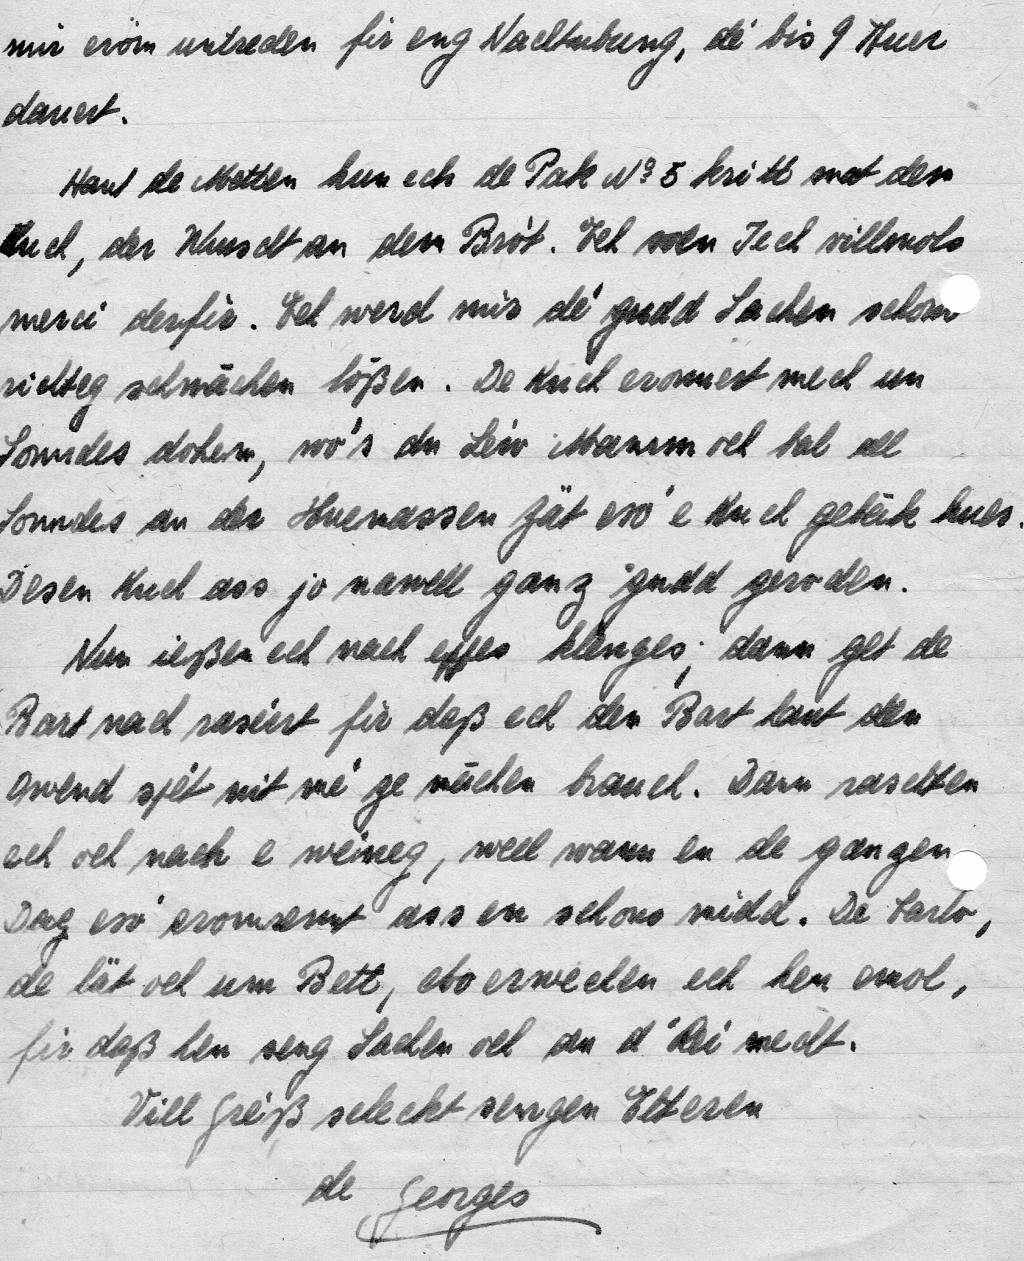 mir eröm untreden fir eng Nachtubung, dé bis 9 Auer
dauert.
Haut de Metten hun ech de Pak № 5 kritt mat dem
Kuch, der Wuscht an dem Brót. Ech soen Iech villmols
merci derfir. Ech werd mir dé gudd Sachen schon
richteg schmāchen lößen. De Kuch erönnert mech un
Sonndes dohem, wo's du Léiw Mamm och bal all
Sonndes an der Huemassen Zät esó e Kuch gebāk hues.
Desen Kuch ass jo nawell ganz gudd geroden.
Nun ießen ech nach eppes klenges; dann get de
Bart nach raséiert fir daß ech den Bart haut den
Owend spét nit mé ze māchen brauch. Dann raschten
ech och nach e wéineg, well wann en de ganzen
Dag esó eromrennt ass en schons midd. De Carlo,
de lät och um Bett, eto erwechen ech hen emol,
fir daß hen seng Sachen och an d'Réi mecht.
Vill Gréiß scheckt sengen Elteren
de Georges